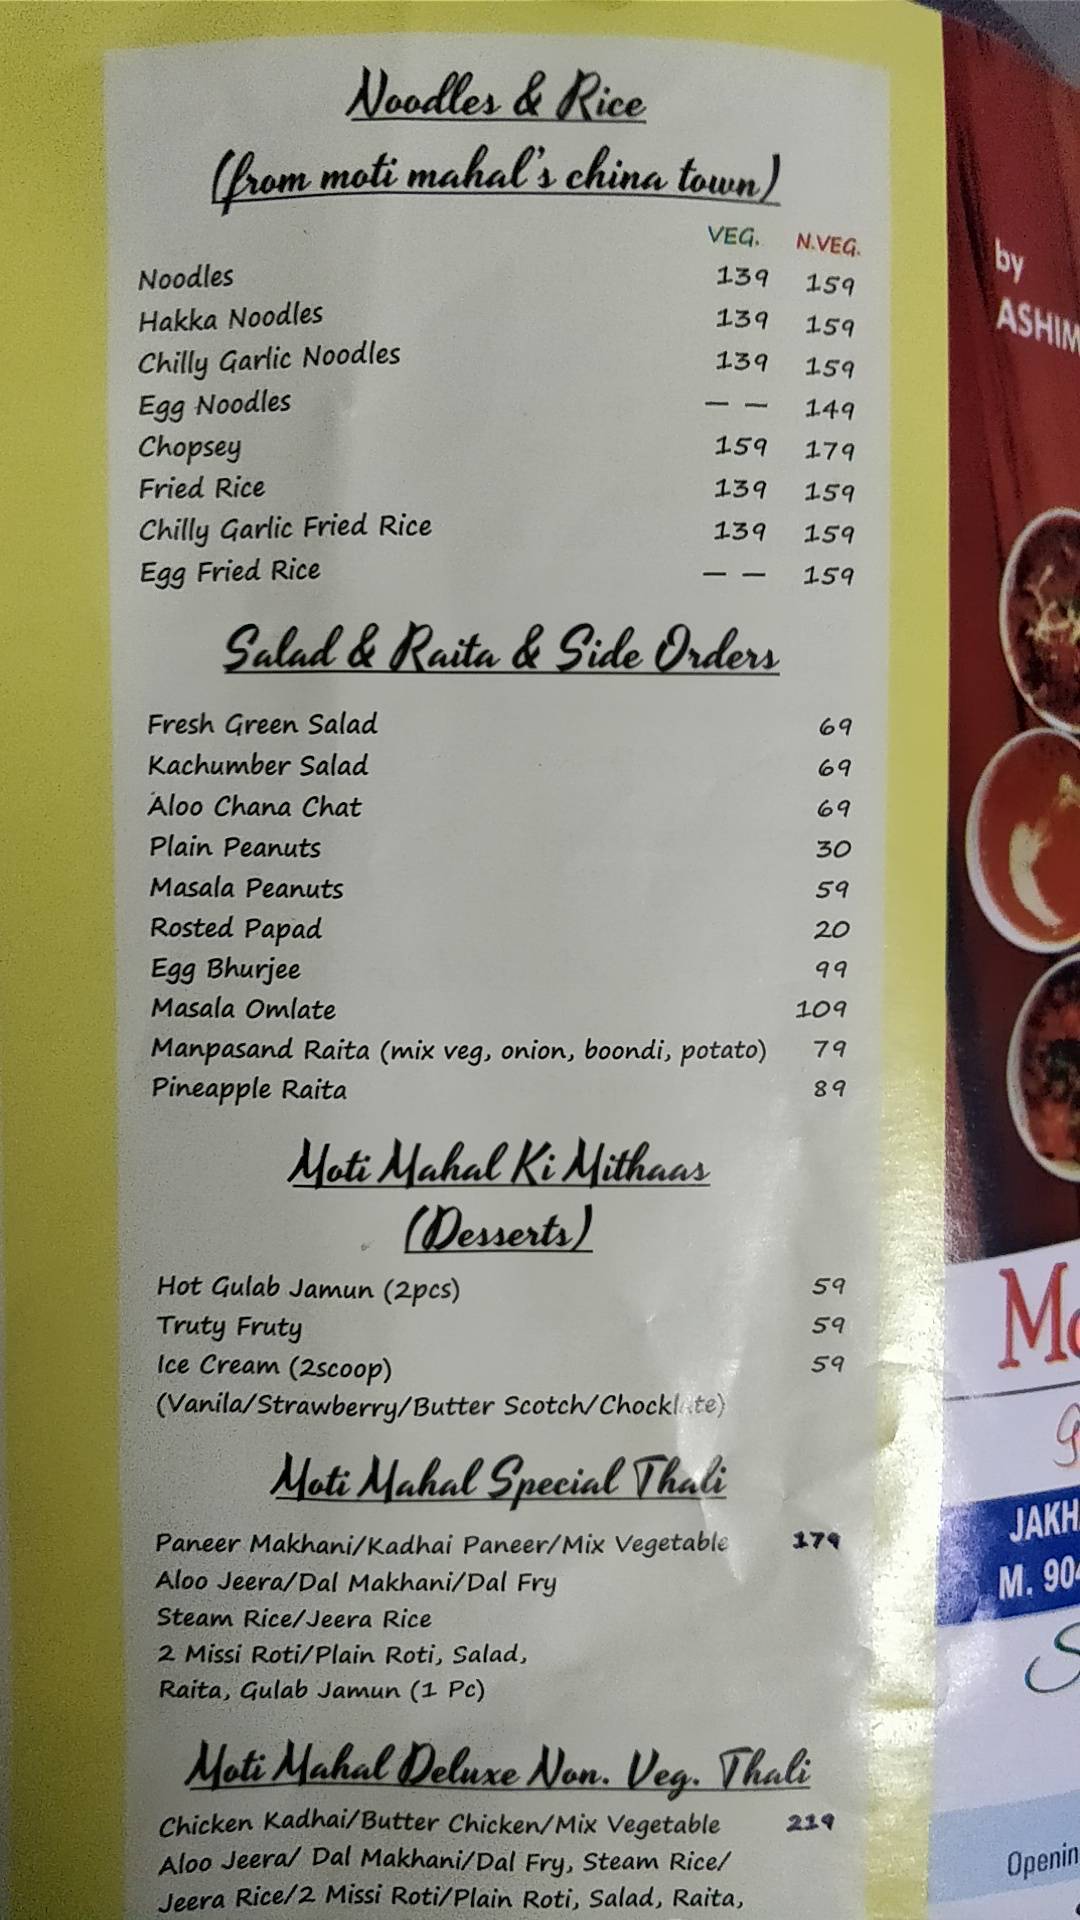 Noodles & Rice
(from moti mahal's china town)
VEG. N.VEG.
Noodles 139 159
Hakka Noodles 139 159
Chilly Garlic Noodles 139 159
Egg Noodles — — 149
Chopsey 159 179
Fried Rice 139 159
Chilly Garlic Fried Rice 139 159
Egg Fried Rice — — 159
Salad & Raita & Side Orders
Fresh Green Salad 69
Kachumber Salad 69
Aloo Chana Chat 69
Plain Peanuts 30
Masala Peanuts 59
Rosted Papad 20
Egg Bhurjee 99
Masala Omlate 109
Manpasand Raita (mix veg, onion, boondi, potato) 79
Pineapple Raita 89
Moti Mahal Ki Mithaas
(Desserts)
Hot Gulab Jamun (2pcs) 59
Truty Fruty 59
Ice Cream (2scoop) 59
(Vanila/Strawberry/Butter Scotch/Chocklate)
Moti Mahal Special Thali
Paneer Makhani/Kadhai Paneer/Mix Vegetable 179
Aloo Jeera/Dal Makhani/Dal Fry
Steam Rice/Jeera Rice
2 Missi Roti/Plain Roti, Salad,
Raita, Gulab Jamun (1 Pc)
Moti Mahal Deluxe Non. Veg. Thali
Chicken Kadhai/Butter Chicken/Mix Vegetable 219
Aloo Jeera/ Dal Makhani/Dal Fry, Steam Rice/
Jeera Rice/2 Missi Roti/Plain Roti, Salad, Raita,
by
ASHIM
JAKH
M. 904
Openin